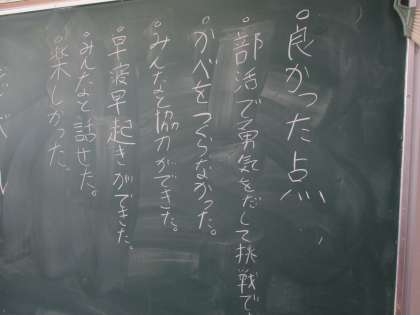 。良かった点
。部活で勇気をだして挑戦で
。かべをつくらなかった。
。みんなと協力ができた。
。早寝早起きができた。
。みんなと話せた。
。楽しかった。